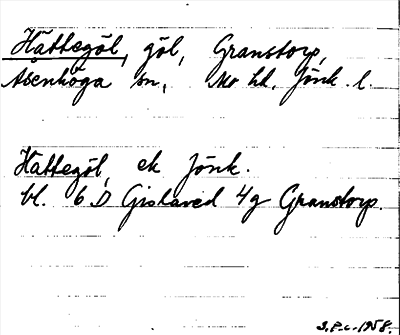 Hättegöl, göl, Granstorp,
Åsenhöga sn, Mo hd, Jönk. l.
Hattegöl, ek Jönk.
bl. 6 D Gislaved 4g Granstorp.
S.P-c. 1958.